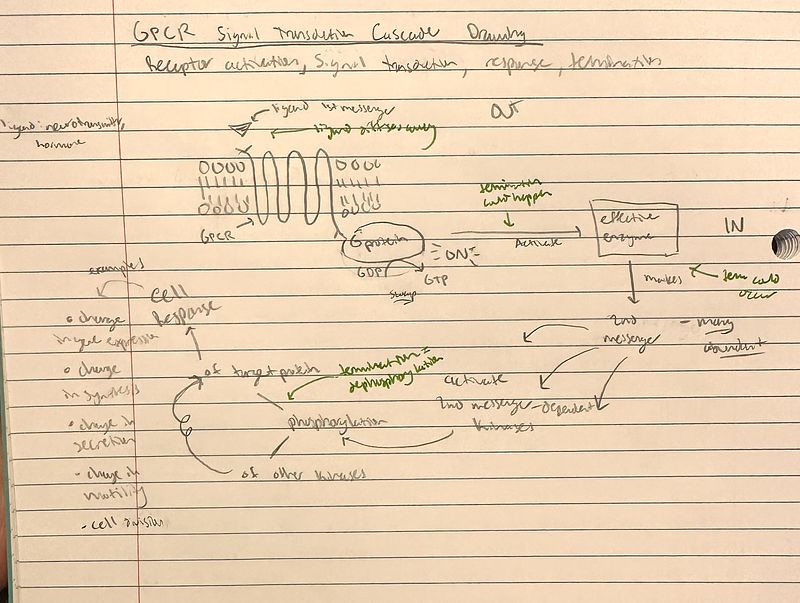 GPCR Signal Transduction Cascade Drawing
Receptor activation, Signal transduction, response, termination
ligand 1st messenger
OUT
ligand: neurotransmitter,
hormone
ligand diffuses away
GPCR
G protein
ON!
GDP
GTP
swap
termination
could happen
Activate
effective
enzyme
IN
makes
term could
occur
2nd
messenger
- many
abundant
activate
2nd messenger-dependent
kinases
phosphorylation
termination =
dephosphorylation
of target protein
of other kinases
cell
Response
examples
• change
in gene expression
• change
in synthesis
• change in
secretion
- change in
motility
- cell division